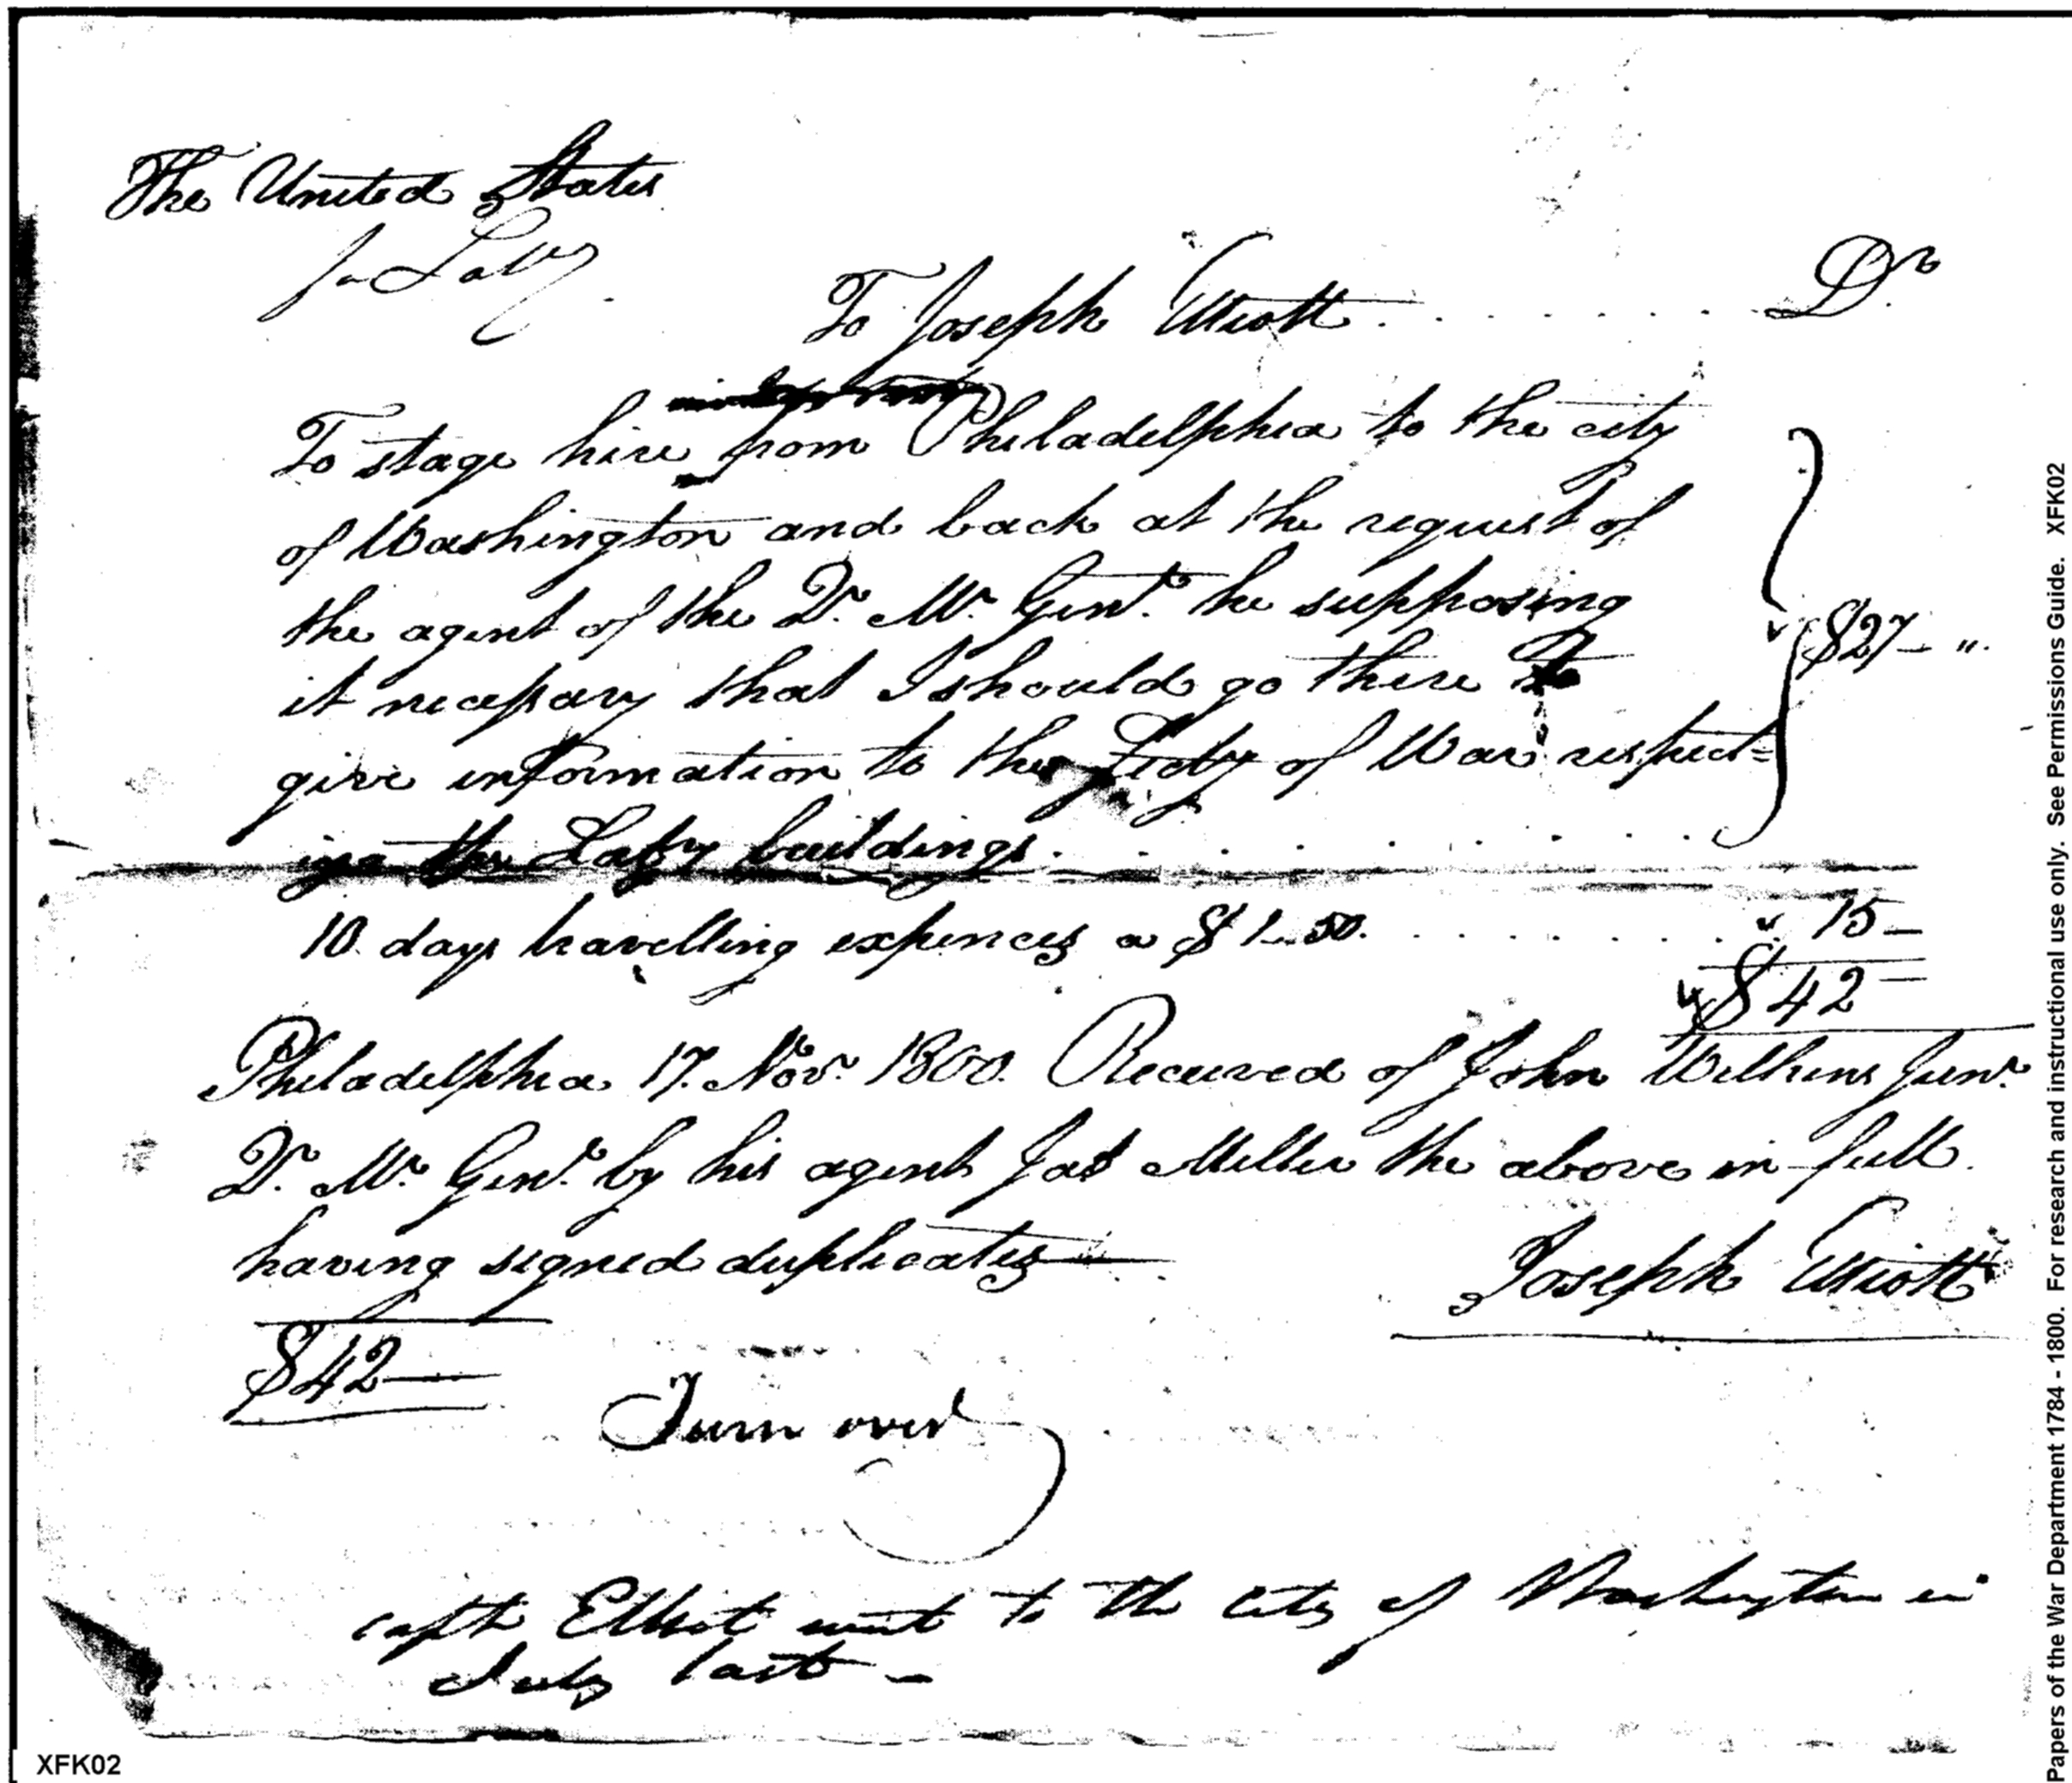 The United States
for Laby
To Joseph Elliott . . . . . . . . . Dr.
To stage hire from Philadelphia to the city
of Washington and back at the request of
the agent of the Qr. Mr. Genl. he supposing
it necessary that I should go there to
give information to the Secty of War respect=
ing the Laby buildings. . . . . . . . $27 - "
10 days travelling expences a $1..50. . . . . . . . . " 15 -
$42 -
Philadelphia 17. Novr. 1800. Received of John Wilkins Junr.
Qr. Mr. Genl. by his agent Jas Miller the above in full
having signed duplicates
Joseph Elliott
$42
Turn over
Capt Elliot went to the City of Washington in
July last -
XFK02
Papers of the War Department 1784 - 1800. For research and instructional use only. See Permissions Guide. XFK02